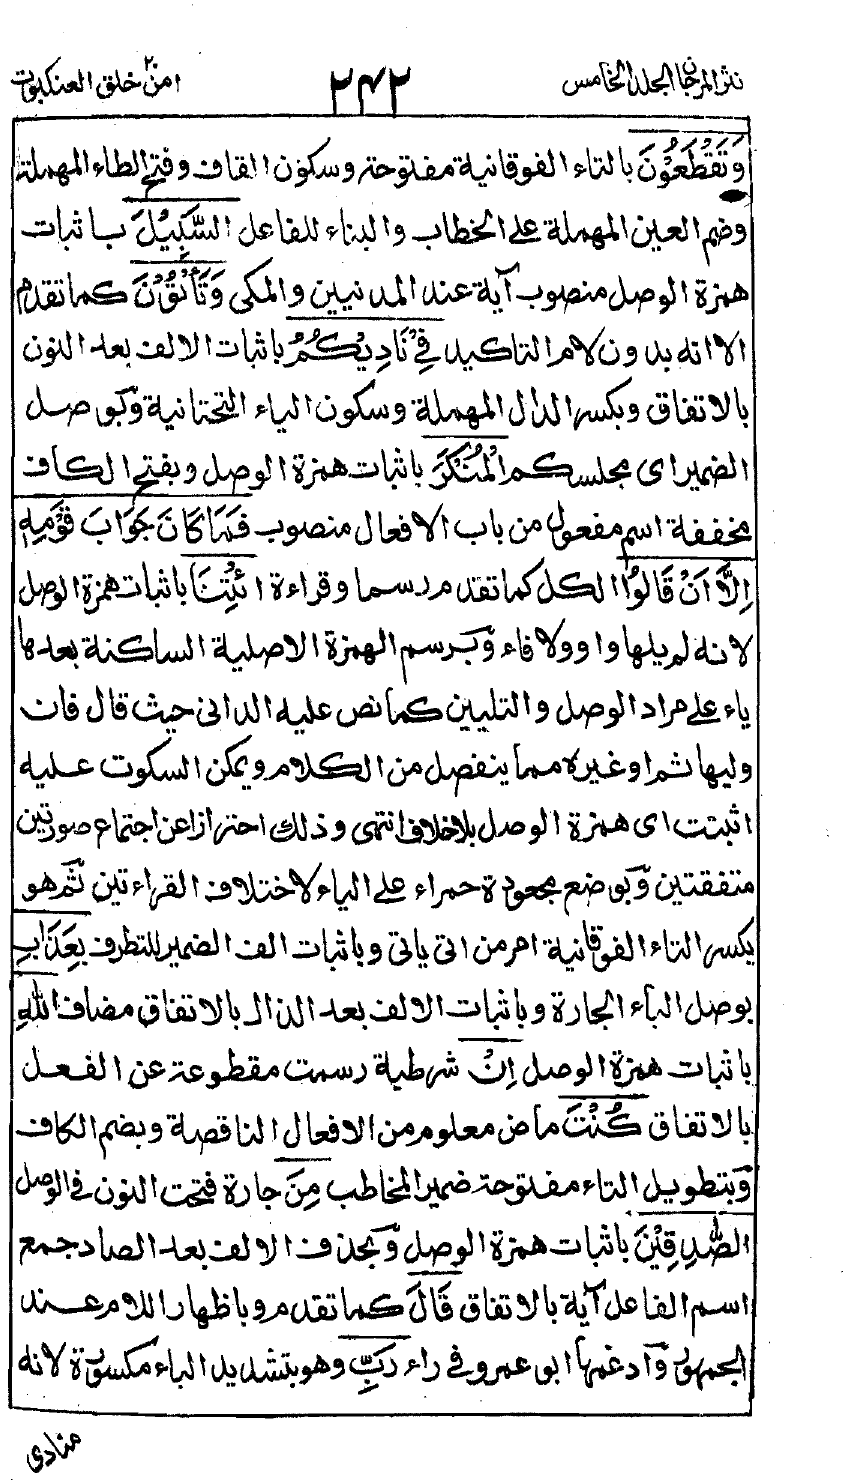 نثر المرجان الجلد الخامس ٢٤٢ امن خلق ٢٠ العنكبوت
وَتَقْطَعُوْنَ بالتاء الفوقانية مفتوحة وسكون القاف وفتح الطاء المهملة
وضم العين المهملة على الخطاب والبناء للفاعل السَّبِيْلَ باثبات
همزة الوصل منصوب آية عند المدنيين والمكي وَتَأْتُوْنَ كما تقدم
الا انه بدون لام التاكيد فِيْ نَادِيْكُمُ باثبات الالف بعد النون
بالاتفاق وبكسر الدال المهملة وسكون الياء التحتانية وبوصل
الضمير اى مجلسكم الْمُنْكَرَ باثبات همزة الوصل وبفتح الكاف
مخففة اسم مفعول من باب الافعال منصوب فَمَا كَانَ جَوَابَ قَوْمِهٖ
اِلَّا اَنْ قَالُوا الكل كما تقدم رسما وقراءة ائْتِنَا باثبات همزة الوصل
لانه لم يلها واو ولا فاء وبرسم الهمزة الاصلية الساكنة بعدها
ياء على مراد الوصل والتليين كما نص عليه الدانى حيث قال فان
وليها ثم او غيره مما ينفصل من الكلام ويمكن السكوت عليه
اثبتت اى همزة الوصل بلا خلاف انتهى وذلك احترازا عن اجتماع صورتين
متفقتين وبوضع مجعودة حمراء على الياء لاختلاف القراءتين ثم هو
بكسر التاء الفوقانية امر من اتى ياتى وباثبات الف الضمير للتطرف بِعَذَابِ
بوصل الباء الجارة وباثبات الالف بعد الذال بالاتفاق مضاف اللّٰهِ
باثبات همزة الوصل اِنْ شرطية رسمت مقطوعة عن الفعل
بالاتفاق كُنْتَ ماض معلوم من الافعال الناقصة وبضم الكاف
وبتطويل التاء مفتوحة ضمير المخاطب مِنَ جارة فتحت النون فى الوصل
الصّٰدِقِيْنَ باثبات همزة الوصل وبحذف الالف بعد الصاد جمع
اسم الفاعل آية بالاتفاق قَالَ كما تقدم وباظهار اللام عند
الجمهور وادغمها ابو عمرو فى راء رَبِّ وهو بتشديد الباء مكسورة لانه
منادى